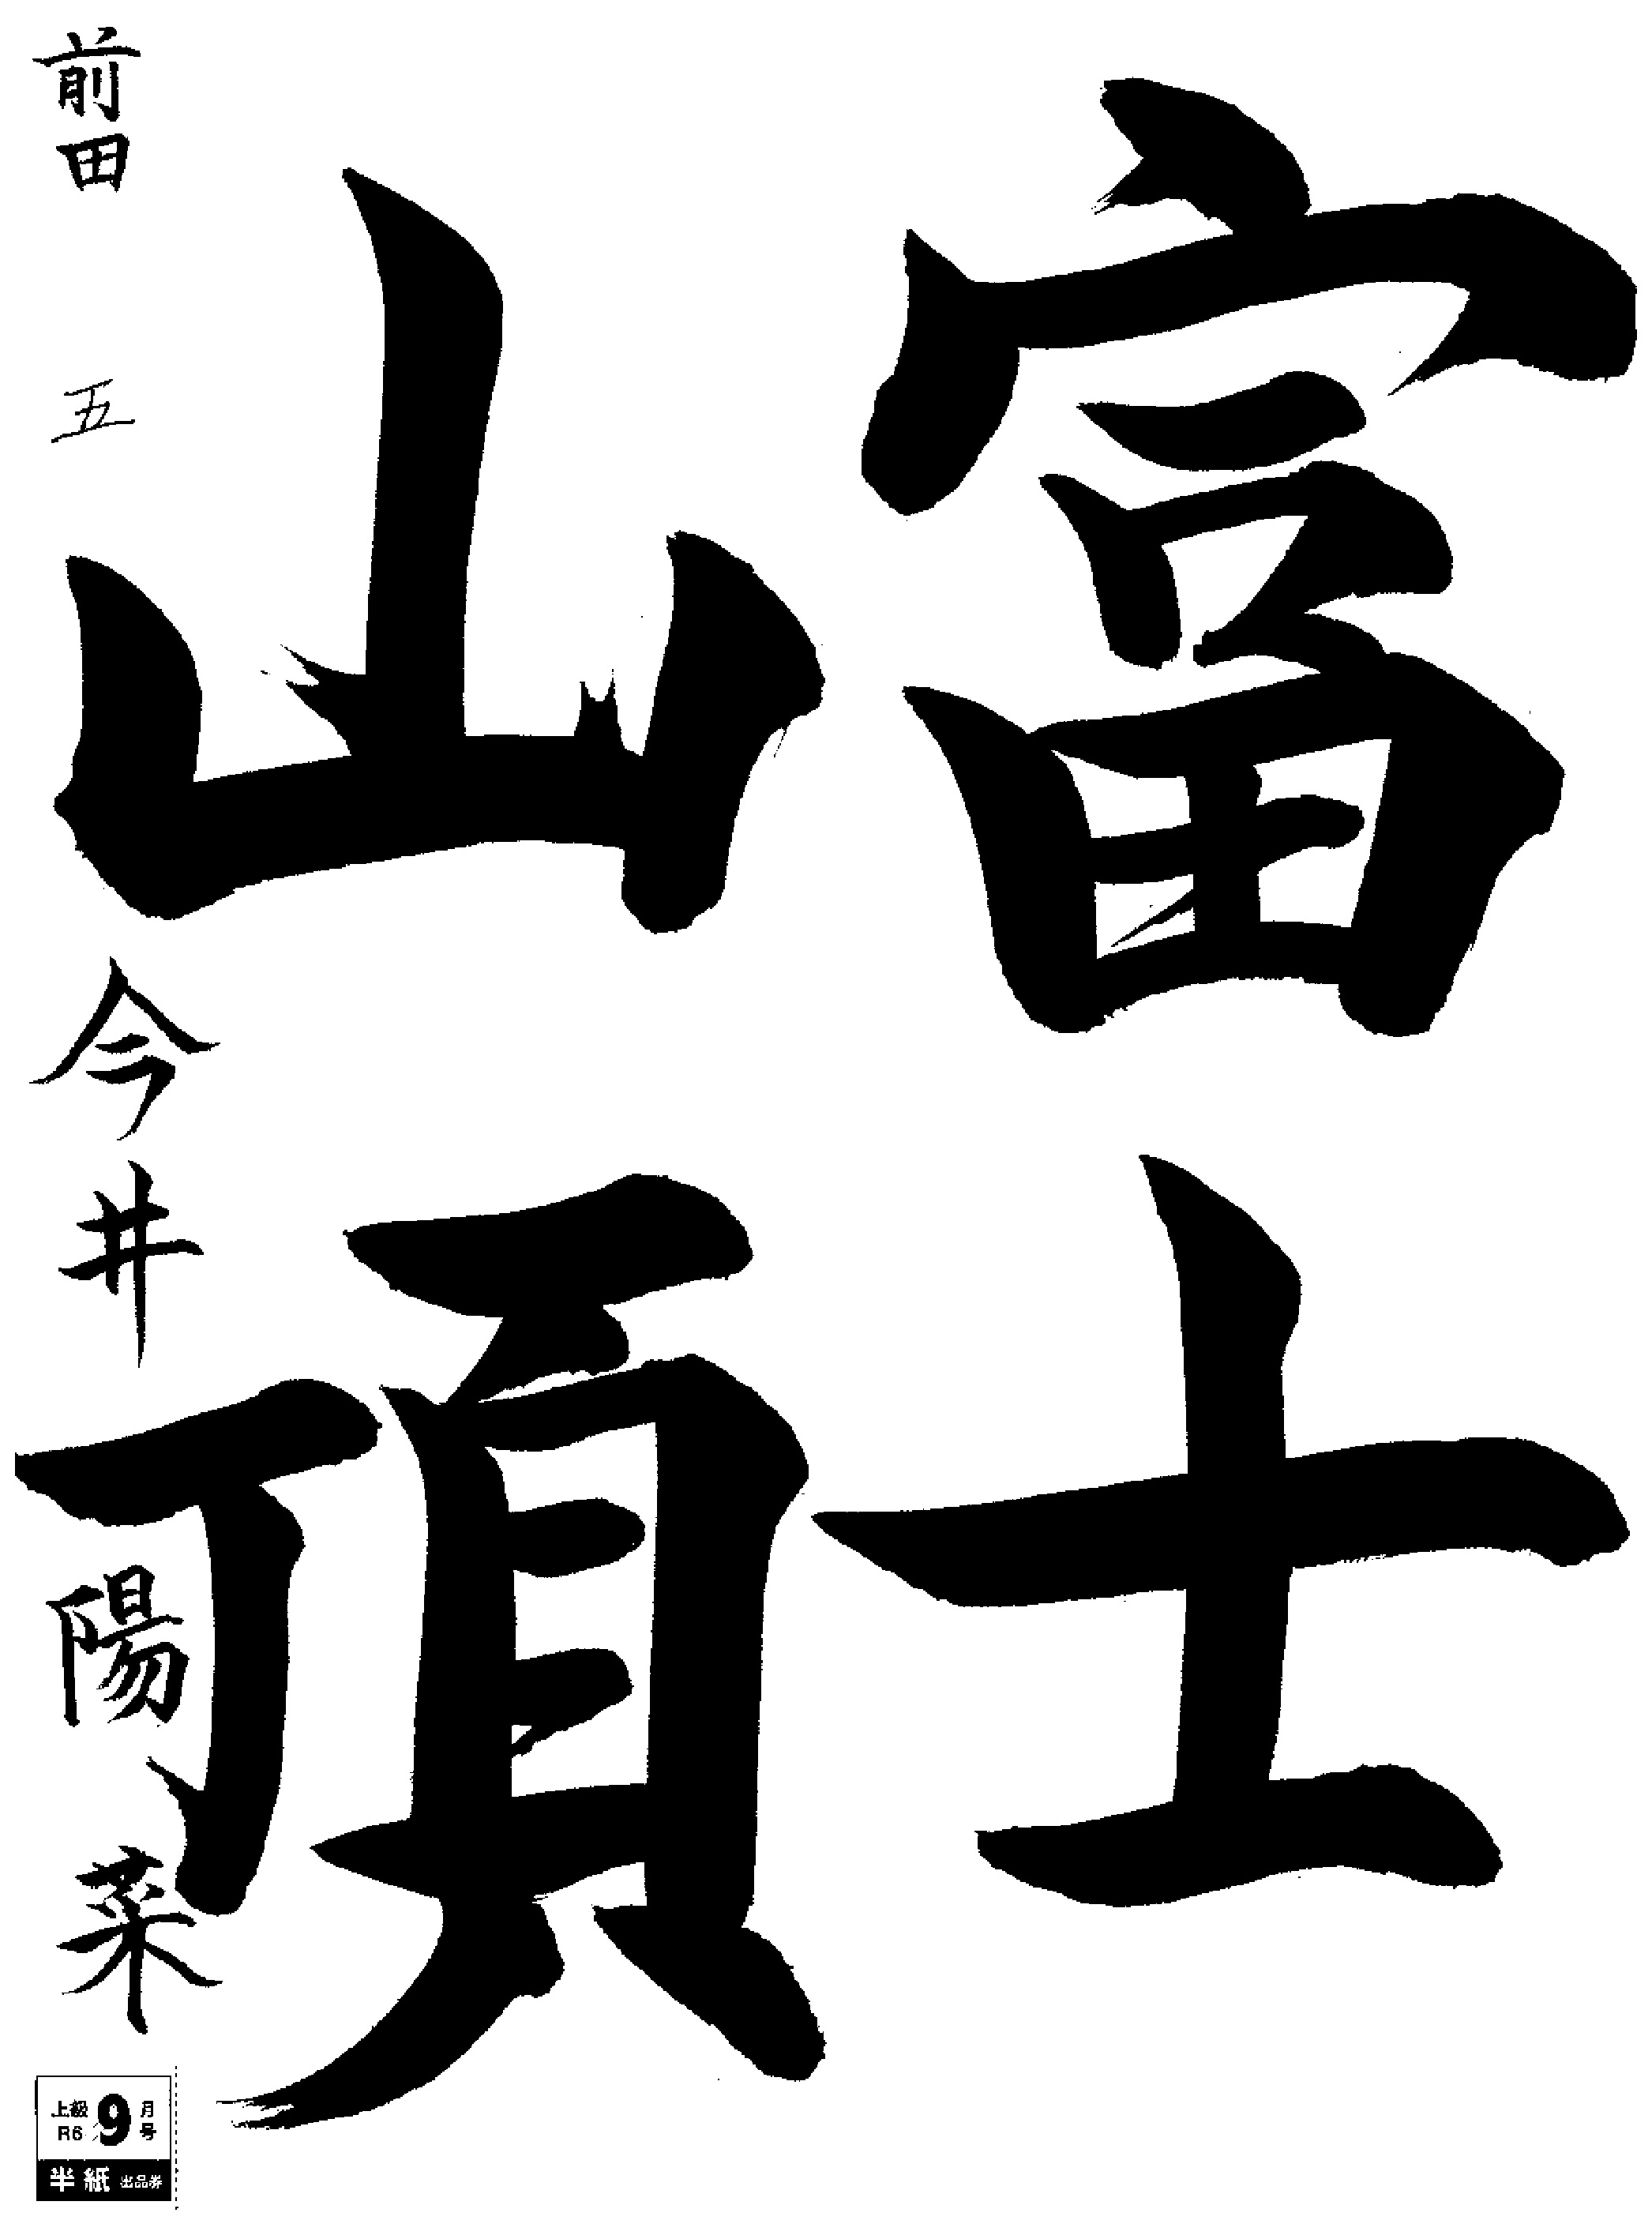 富士
山頂
前田 五 今井陽菜
上級 R6 9月号
半紙 出品券